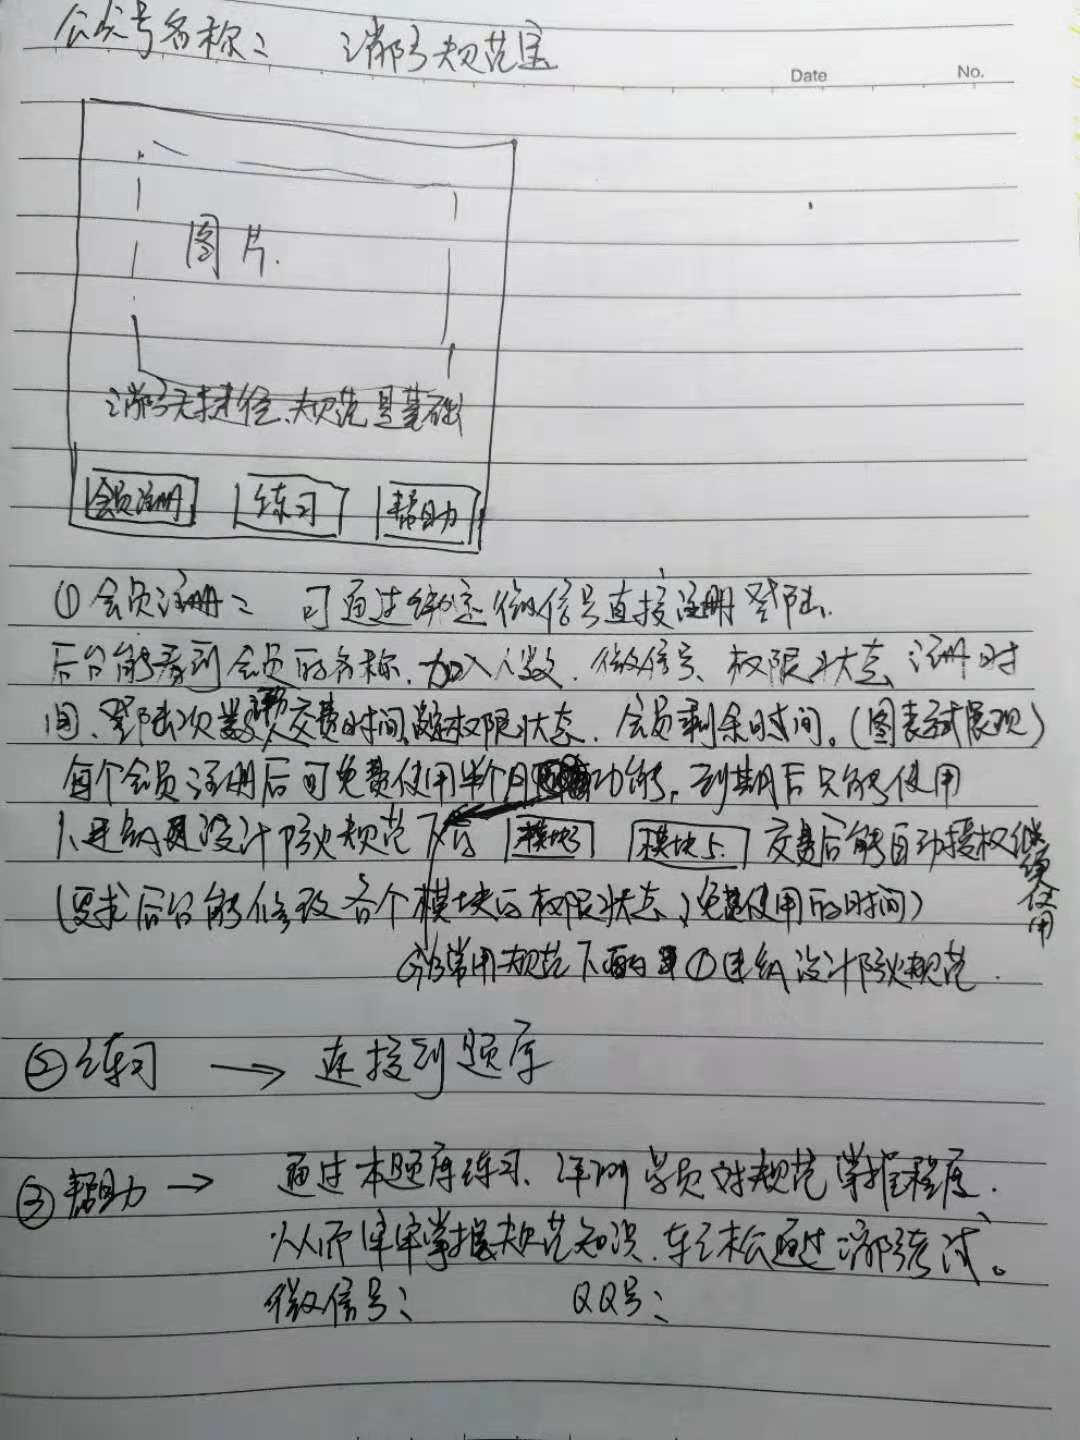 公众号名称： 消防规范宝
Date No.
图片.
消防无捷径、规范是基础
会员注册 练习 帮助
①会员注册： 可通过绑定微信号直接注册登陆.
后台能看到会员的名称、加入人数、微信号、权限状态、注册时
间、登陆次数、交费时间、权限状态、会员剩余时间。(图表试展现)
每个会员注册后可免费使用半个月功能，到期后只能使用
1、建筑设计防火规范下的 模块3 模块5. 交费后能自动授权继续使用
(要求后台能修改各个模块的权限状态、免费使用的时间)
为常用规范下面的①建筑设计防火规范.
②练习 → 连接到题库
③帮助 → 通过本题库练习、评测学员对规范掌握程度.
从而牢牢掌握规范知识、轻松通过消防考试。
微信号： QQ号：